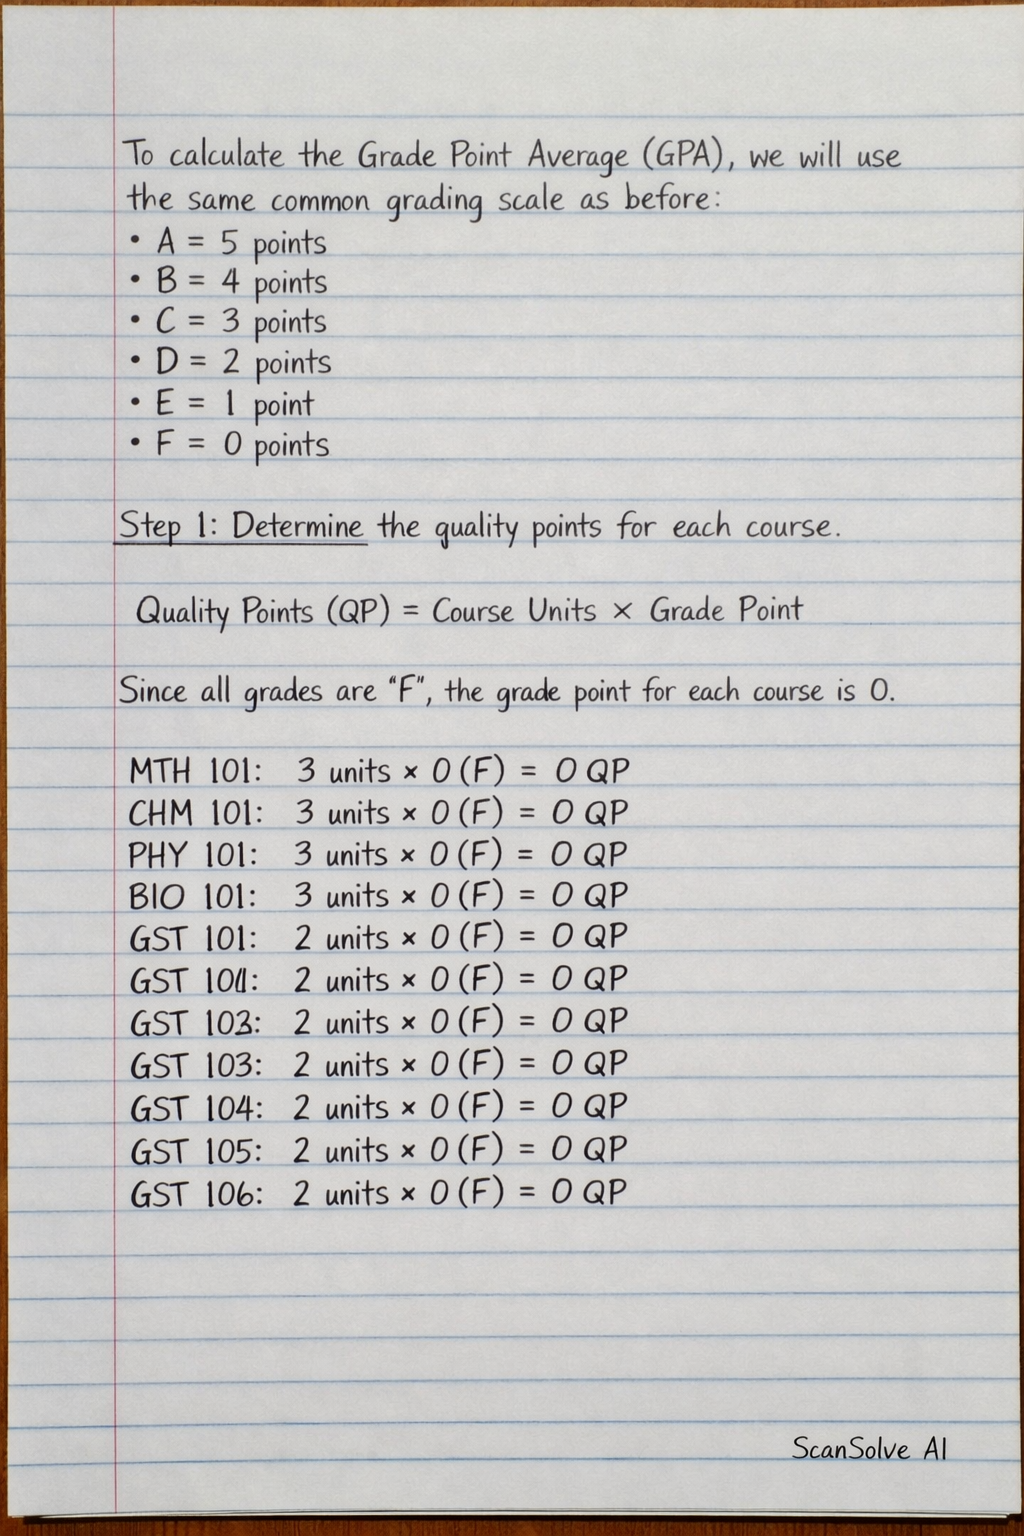 To calculate the Grade Point Average (GPA), we will use
the same common grading scale as before:
• A = 5 points
• B = 4 points
• C = 3 points
• D = 2 points
• E = 1 point
• F = 0 points
Step 1: Determine the quality points for each course.
Quality Points (QP) = Course Units × Grade Point
Since all grades are "F", the grade point for each course is 0.
MTH 101: 3 units × 0 (F) = 0 QP
CHM 101: 3 units × 0 (F) = 0 QP
PHY 101: 3 units × 0 (F) = 0 QP
BIO 101: 3 units × 0 (F) = 0 QP
GST 101: 2 units × 0 (F) = 0 QP
GST : 2 units × 0 (F) = 0 QP
GST : 2 units × 0 (F) = 0 QP
GST 103: 2 units × 0 (F) = 0 QP
GST 104: 2 units × 0 (F) = 0 QP
GST 105: 2 units × 0 (F) = 0 QP
GST 106: 2 units × 0 (F) = 0 QP
ScanSolve AI